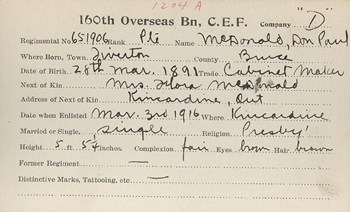 1204 A
160th Overseas Bn, C.E.F. Company "D"
Regimental No. 651906 Rank Pte Name McDonald, Don Paul
Where Born, Town, Tiverton County Bruce
Date of Birth. 28th Mar. 1891 Trade. Cabinet Maker
Next of Kin Mrs. Flora McDonald
Address of Next of Kin Kincardine, Ont
Date when Enlisted Mar. 3rd 1916 Where Kincardine
Married or Single, Single Religion. Presby'
Height. 5 ft. 5½ inches. Complexion— fair Eyes brown Hair brown
Former Regiment —
Distinctive Marks, Tattooing, etc —